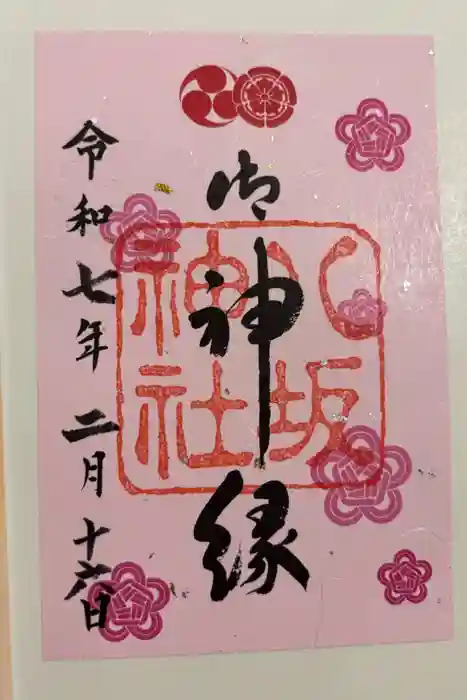 御神縁
八坂神社
令和七年二月十六日